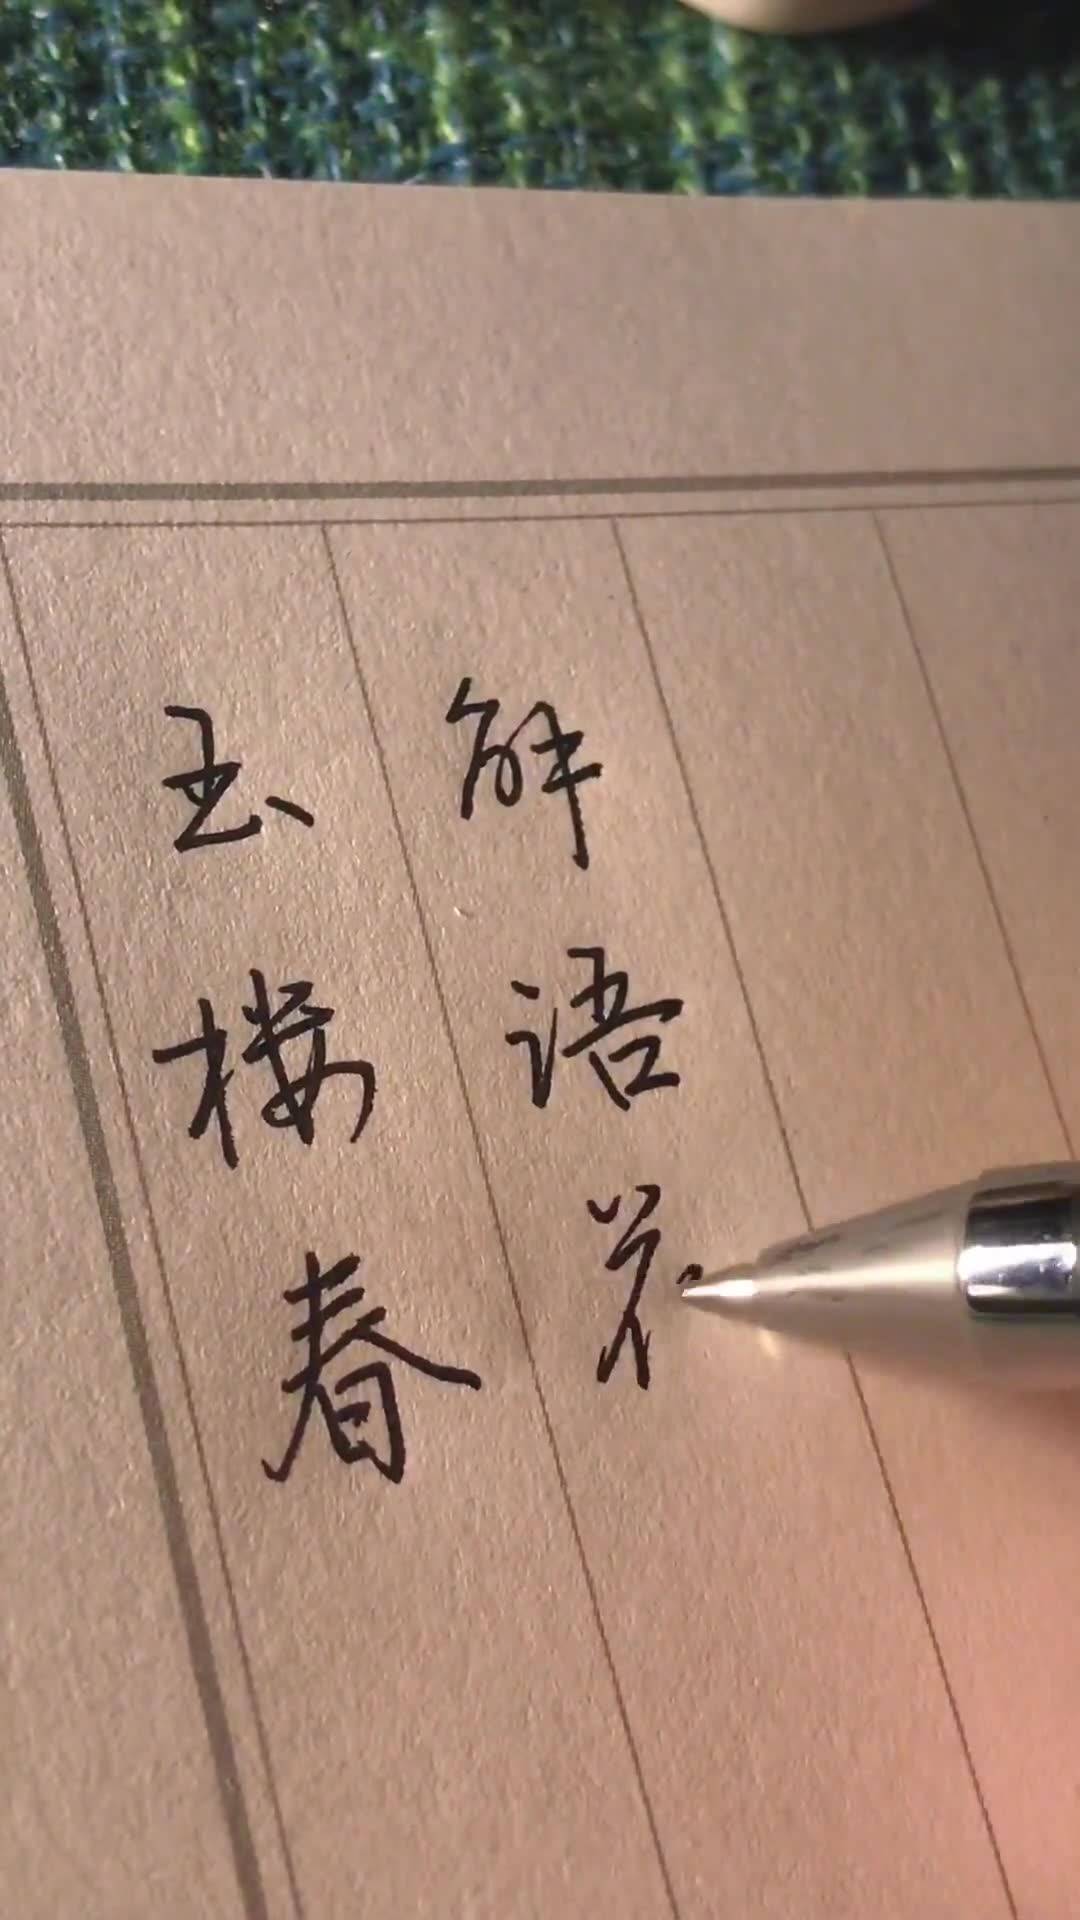 玉楼春
解语花